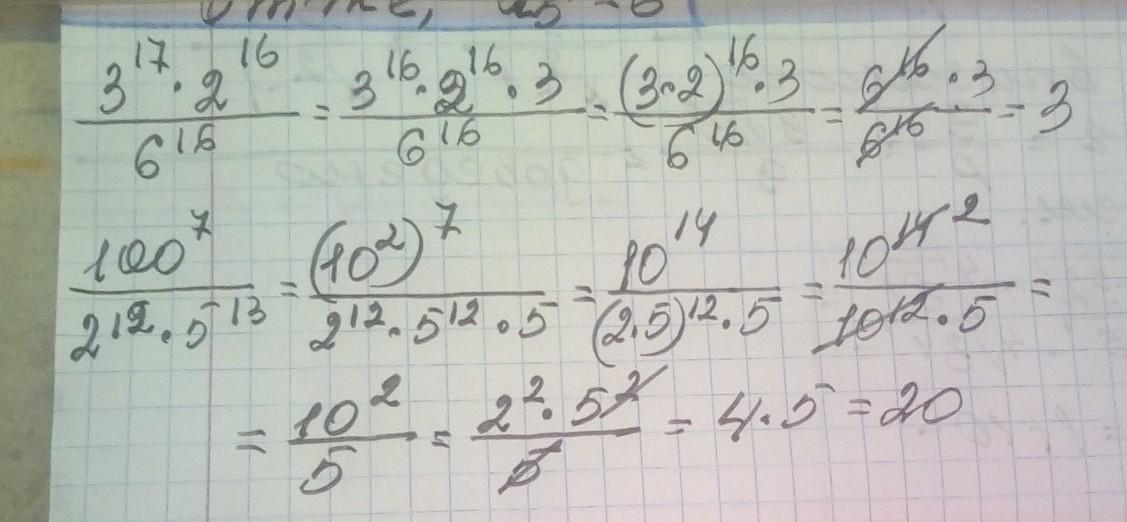 3^17 · 2^16 / 6^16 = 3^16 · 2^16 · 3 / 6^16 = (3·2)^16 · 3 / 6^16 = 6^16 · 3 / 6^16 = 3
100^7 / 2^12 · 5^13 = (10^2)^7 / 2^12 · 5^12 · 5 = 10^14 / (2·5)^12 · 5 = 10^14 2 / 10^12 · 5 =
= 10^2 / 5 = 2^2 · 5^2 / 5 = 4 · 5 = 20